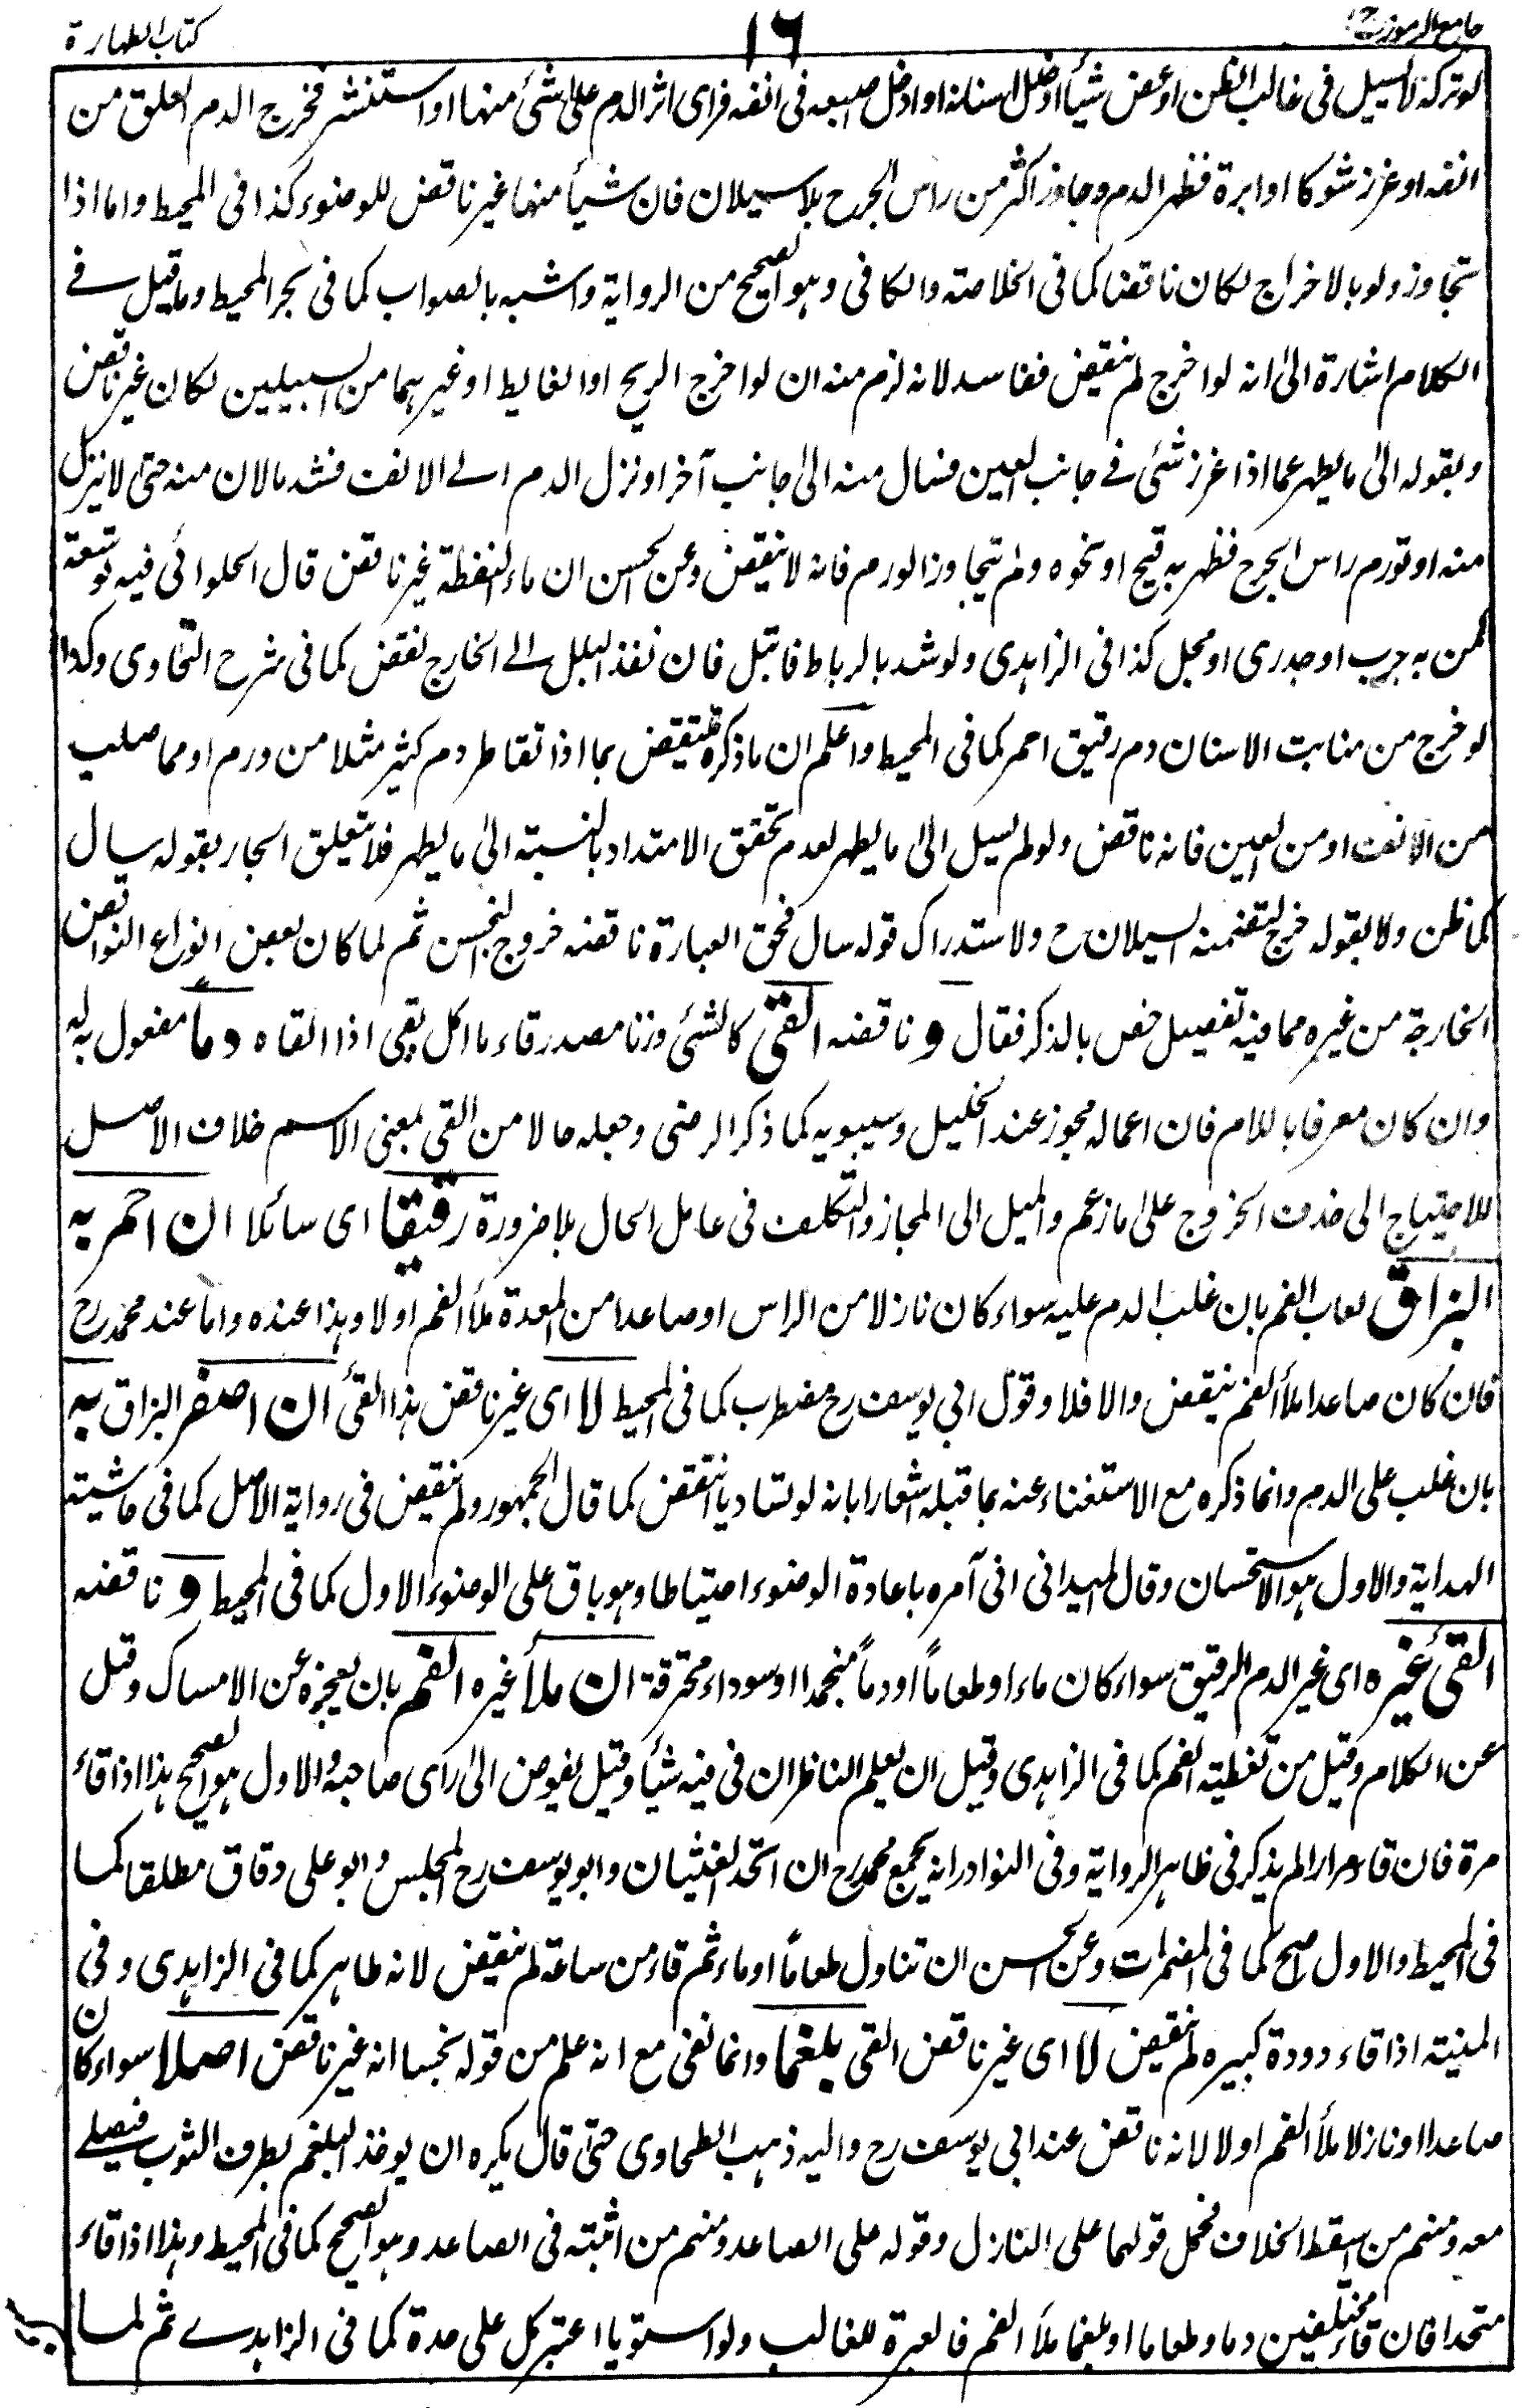 جامع الرموز ج ١
١٦
كتاب الطهارة
لو تركه لا يسيل فى غالب الظن او عض شيأ او خلل اسنانه او ادخل اصبعه فى انفه فراى اثر الدم على شئ منها او استنثر فخرج الدم العلق من
انفه او غرز شوكا او ابرة فظهر الدم وجاوز اكثر من راس الجرح بلا سيلان فان شيأ منها غير ناقض للوضوء كذا فى المحيط واما اذا
تجاوز ولو بالاخراج لكان ناقضا كما فى الخلاصة والكافى وهو الصحيح من الرواية واشبه بالصواب كما فى بحر المحيط وما قيل فے
الكلام اشارة الى انه لو اخرج لم ينقض ففاسد لانه لزم منه ان لو اخرج الريح او الغايط او غيرهما من السبيلين لكان غير ناقض
وبقوله الى ما يطهر عما اذا غرز شئ فے جانب العين فسال منه الى جانب آخر او نزل الدم الے الانف فشد مالان منه حتى لا ينزل
منه او تورم راس الجرح فظهر به قيح او نحوه ولم يتجاوز الورم فانه لا ينقض وعن الحسن ان ماء النفطة غير ناقض قال الحلوائى فيه توسعة
لمن به جرب او جدرى او مجل كذا فى الزاهدى ولو شد بالرباط فابتل فان نفذ البلل الے الخارج نقض كما فى شرح الطحاوى وكذا
لو خرج من منابت الاسنان دم رقيق احمر كما فى المحيط واعلم ان ما ذكره منتقض بما اذا تقاطر دم كثير مثلا من ورم او مما صلب
من الانف او من العين فانه ناقض ولو لم يسيل الى ما يطهر لعدم تحقق الامتداد بالنسبة الى ما يطهر فلا يتعلق الجار بقوله سال
كما ظن ولا بقوله خرج لتضمنه السيلان ح ولا ستدراك قوله سال فحق العبارة ناقضه خروج النجس ثم لما كان بعض انواع النواقض
الخارجة من غيره مما فيه تفصيل خص بالذكر فقال و ناقضه القئ كالشئ وزنا مصدر قاء ما اكل يقئ اذا القاه دما مفعول به له
وان كان معرفا باللام فان اعماله يجوز عند الخليل وسيبويه كما ذكر الرضى وجعله حالا من القى بمعنى الاسم خلاف الاصل
للاحتياج الى حذف الخروج على ما زعم والميل الى المجاز والتكلف فى عامل الحال بلا ضرورة رقيقا اى سائلا ان احمر به
البزاق لعاب الفم بان غلب الدم عليه سواء كان نازلا من الراس او صاعدا من المعدة ملأ الفم او لا وهذا عنده واما عند محمد رح
فان كان صاعدا ملأ الفم ينقض والا فلا وقول ابى يوسف رح مضطرب كما فى المحيط لا اى غير ناقض هذا القئ ان اصفر البزاق به
بان غلب على الدم وانما ذكره مع الاستغناء عنه بما قبله اشعارا بانه لو تساويا انتقض كما قال الجمهور ولم ينقض فى رواية الاصل كما فى حاشية
الهداية والاول هو الاستحسان وقال الميدانى انى آمره باعادة الوضوء احتياطا وهو باق على الوضوء الاول كما فى المحيط و ناقضه
القئ غيره اى غير الدم الرقيق سواء كان ماء او طعاماً او دماً منجمدا او سوداء محترقة ان ملأ غيره الفم بان يعجزه عن الامساك وقيل
عن الكلام وقيل من تغطية الفم كما فى الزاهدى وقيل ان يعلم الناظر ان فى فيه شيأ وقيل يفوض الى راى صاحبه والاول هو الصحيح هذا اذا قاء
مرة فان قاء مرارا لم يذكر فى ظاهر الرواية وفى النوادر انه يجمع محمد رح ان اتحد الغثيان وابو يوسف رح المجلس وابو على دقاق مطلقا كما
فى المحيط والاول اصح كما فى المضمرات وعن الحسن ان تناول طعاماً او ماء ثم قاء من ساعة لم ينقض لانه طاهر كما فى الزاهدى وفى
المنية اذا قاء دودة كبيره لم ينقض لا اى غير ناقض القى بلغما وانما نفى مع انه علم من قوله نجسا انه غير ناقض اصلا سواء كان
صاعدا او نازلا ملأ الفم او لا لانه ناقض عند ابى يوسف رح واليه ذهب الطحاوى حتى قال يكره ان يوخذ البلغم بطرف الثوب فيصلے
معه ومنهم من اسقط الخلاف فحمل قولهما على النازل وقوله على الصاعد ومنهم من اثبته فى الصاعد وهو الصحيح كما فى المحيط وهذا اذا قاء
متحدا فان قاء مختلفين دما وطعاما او بلغما ملأ الفم فالعبرة للغالب ولو استويا اعتبر كل على حدة كما فى الزاهدے ثم لما